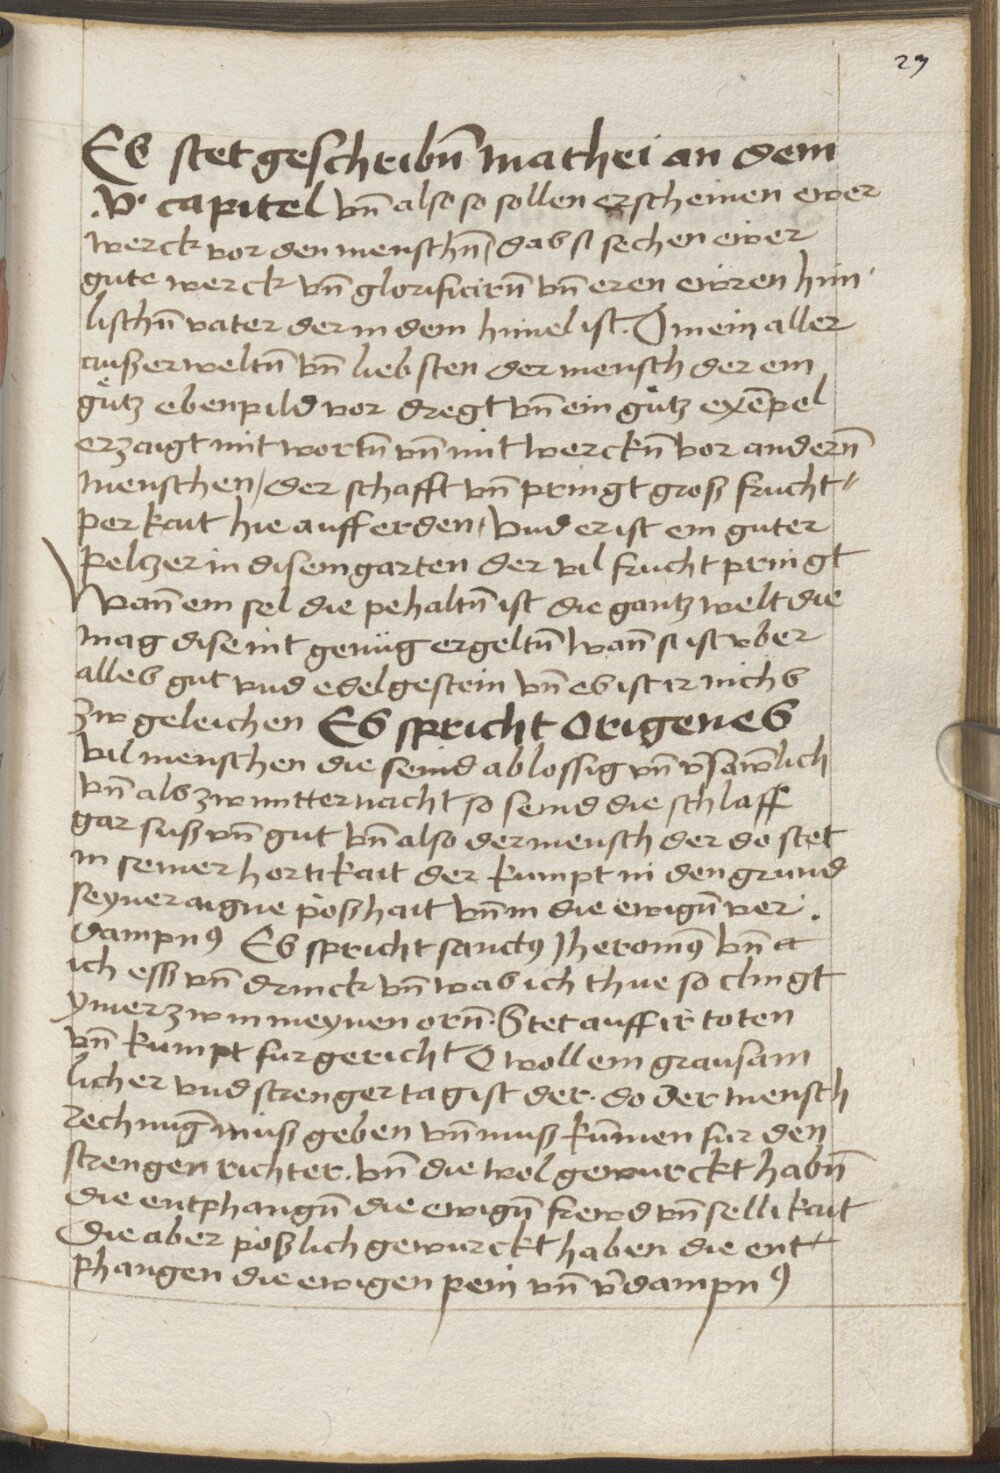 23
Es stet geschribn̄ mathei an dem
.v. capitel vn̄ also so sollen erscheinen ewer
werck vor den menschn̄ / das si sechen ewer
gute werck vn̄ glorificirn̄ vn̄ eren ewren him
lischn̄ vater der in dem himel ist. O mein aller
außerweltn̄ vn̄ liebsten der mensch der ein
gůtz ebenpild vor dregt vn̄ ein gůtz exēpel
erzaigt mit wortn̄ vn̄ mit werckn̄ vor andern̄
menschen / der schafft vn̄ pringt groß frucht〃
perkait hie auff erden / vnd er ist ein guter
peltzer in disem garten der vil frucht pringt
Wan̄ ein sel die pehaltn̄ ist die gantz welt die
mag dise nit genüg ergeltn̄ wan̄ si ist vber
alles gut vnd edelgestein vn̄ es ist ir nichs
zw geleichen Es spricht Origenes
vil menschen die seind ablossig vn̄ v̄sawm̄lich
vn̄ als zw mitternacht so seind die schlaff
gar suß vn̄ gut vn̄ also der mensch der do stet
in seiner hertikait der kumpt in den grund
seyner aigne poßhait vn̄ in die ewign̄ ver.
dampnꝰ Es spricht sanctꝰ Jheronimꝰ vn̄ a
ich eß vn̄ drinck vn̄ was ich thue so clingt
ymer zw in meynen orn̄. Stet auff ir toten
vn̄ kumpt fur gericht O woll ein grausam
licher vnd strenger tag ist der. do der mensch
rechnuḡ muß geben vn̄ muß kūmen fur den
strengen richter. vn̄ die wol gewurckt habn̄
die entphangn̄ die ewign̄ frewd vn̄ sellikait
Die aber poßlich gewurckt haben die ent〃
phangen die ewigen pein vn̄ v̄dampnꝰ